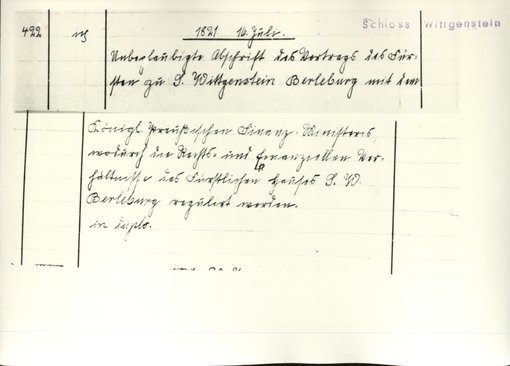 492 1821 16. Juli. Schloss Wittgenstein
Unbeglaubigte Abschrift des Vertrags des Für-
sten zu S. Wittgenstein Berleburg mit dem
Königl. Preußischen Finanz-Ministers,
wodurch die Rechts- und finanziellen Ver-
hältnisse des Fürstlichen Hauses S. W.
Berleburg regulirt worden.
in duplo.